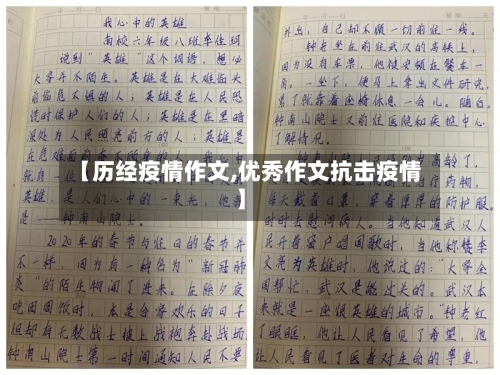 我心中的英雄
南校六年级八班李佳纲
说到“英雄”这个词语，想必
大家并不陌生。英雄是在大难临头
前临危不惧的人；英雄是在人民恐
慌时保护人们的人；英雄是在黑暗
深处为人民照亮前方的人；英雄是
英雄，是人们心中的一束光，他就
是——钟南山院士。
2020年的春节与往日的春节并
不一样，因为有一种名为“新冠肺
炎”的陌生物闯了进来。在除夕夜
吃团圆饭时，本是合家欢乐的日子
但却有无数战士披上战袍奔赴战场
钟南山院士第一时间通知人民不要
外出，自己却不顾一切前往一线。
钟老坐在前往武汉的高铁上，
因为没有车票，他被安顿在餐车一
角。一坐下，便马上拿出文件研究，
累了就靠着座椅休息一会儿。随后，
钟南山院士又前往医院和疾控中心
了解情况。
【历经疫情作文,优秀作文抗击疫情
】
时时去慰问病人。当他知道武汉人
民开着窗户唱国歌时，当他称赞李
文亮为英雄时，他说过的：“大家全
国帮忙，武汉是能过关的。武汉本
来就是一座很英雄的城市。”钟老红
了眼眶，他让人民看见了希望，他
让人民看见了医者对生命的尊重，